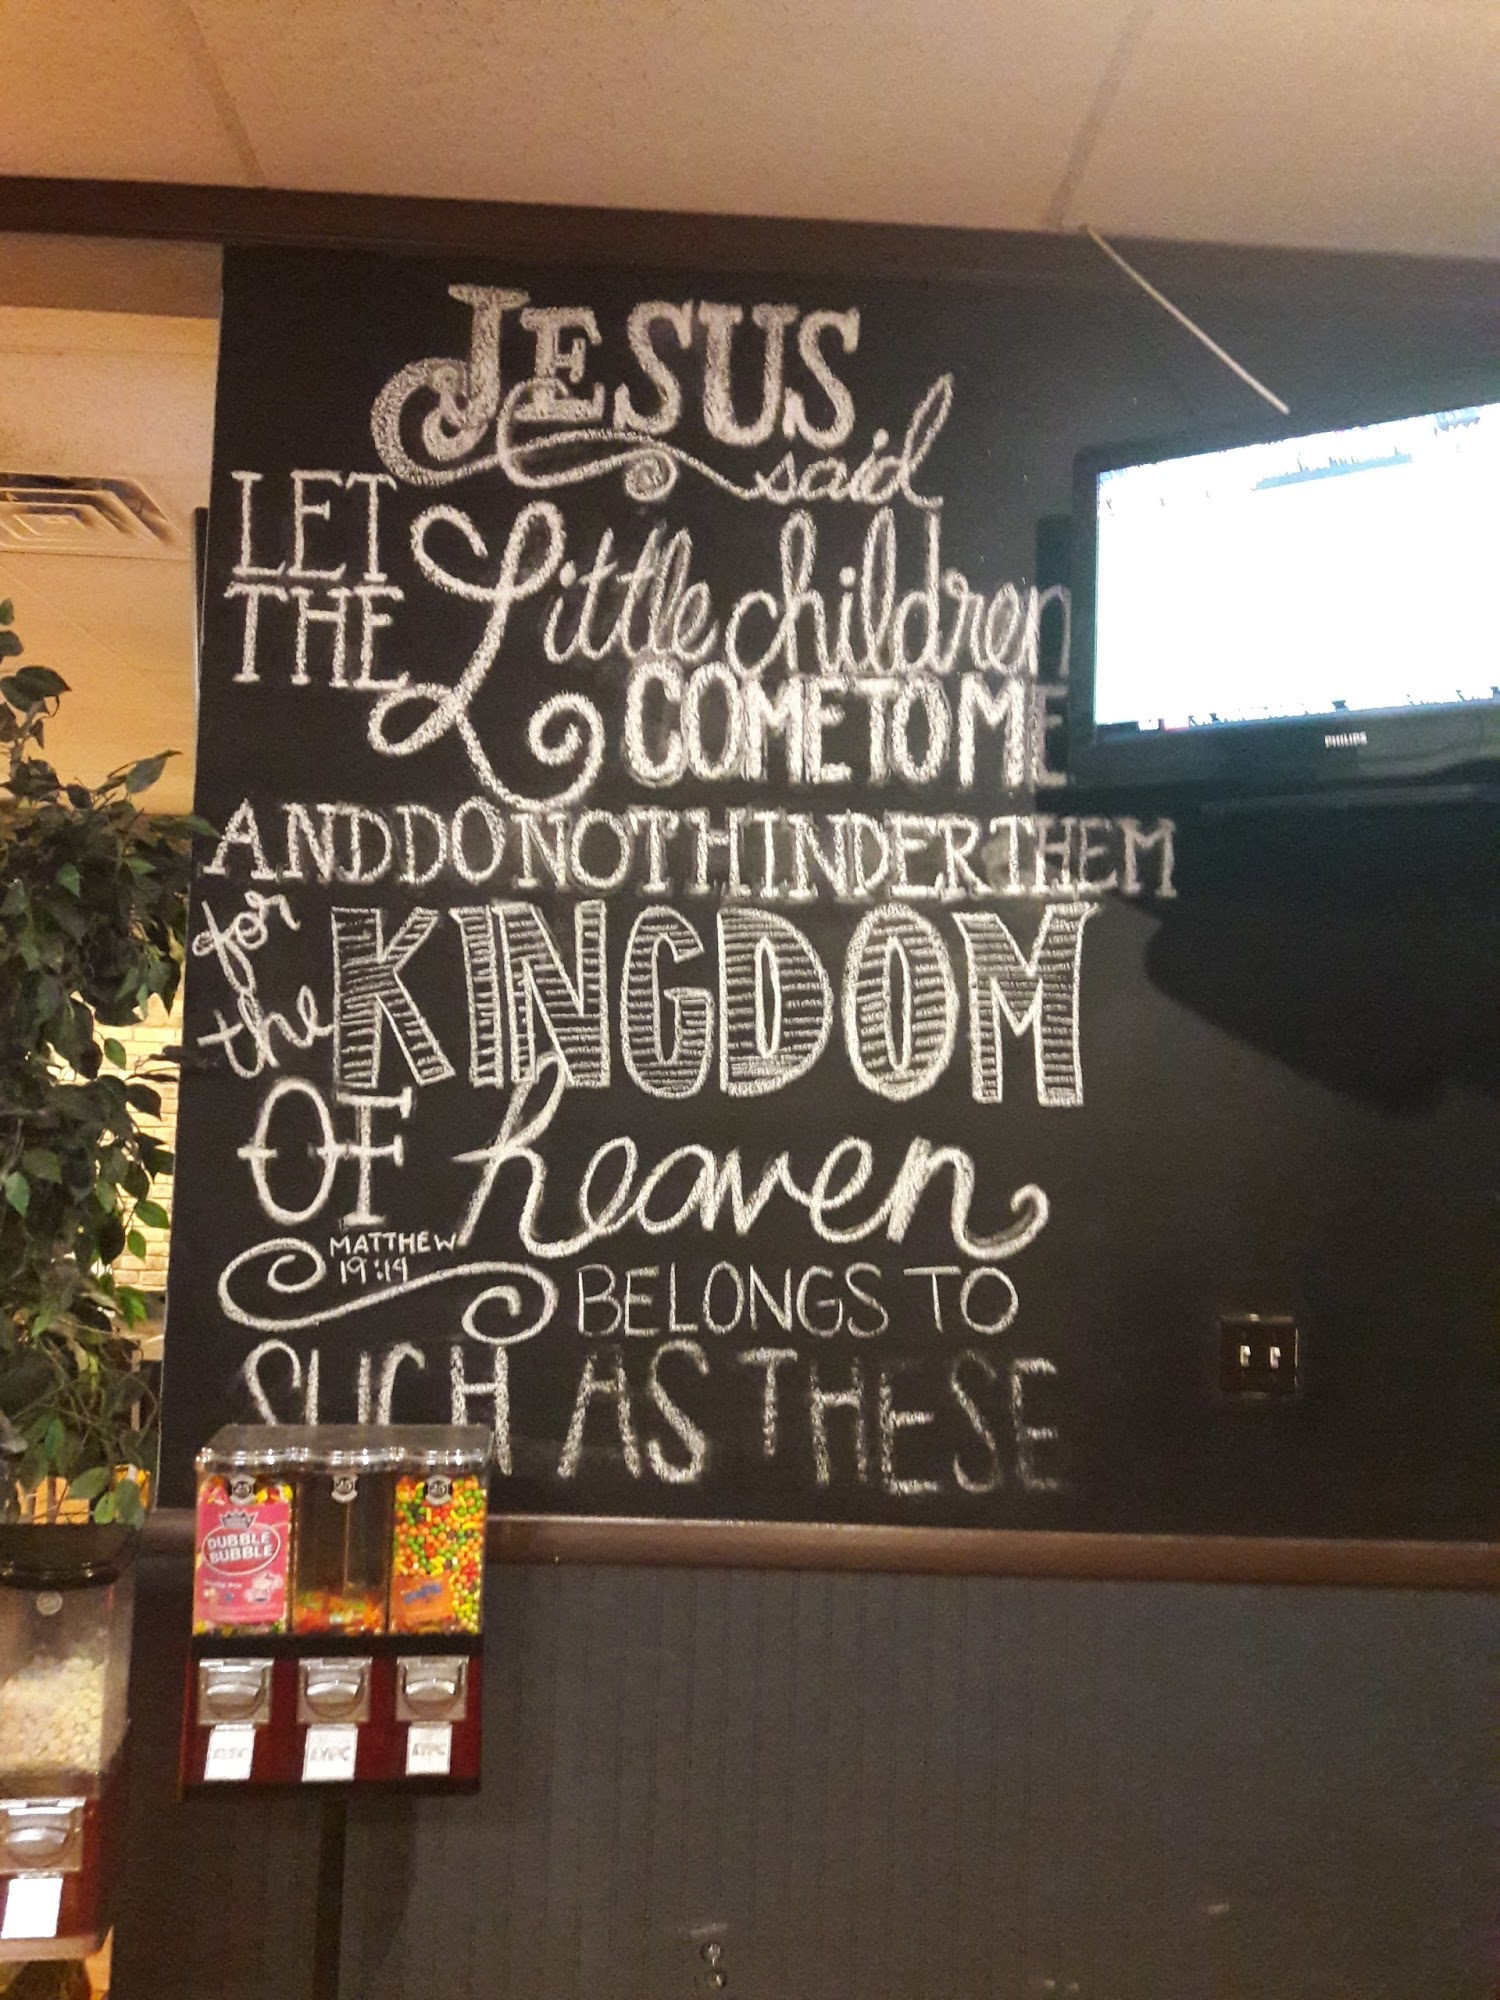 JESUS
said
LET
THE
Little children
COME TO ME
AND DO NOT HINDER THEM
for
the
KINGDOM
OF heaven
MATTHEW
19:14
BELONGS TO
SUCH AS THESE
PHILIPS
25
25
25
DUBBLE
BUBBLE